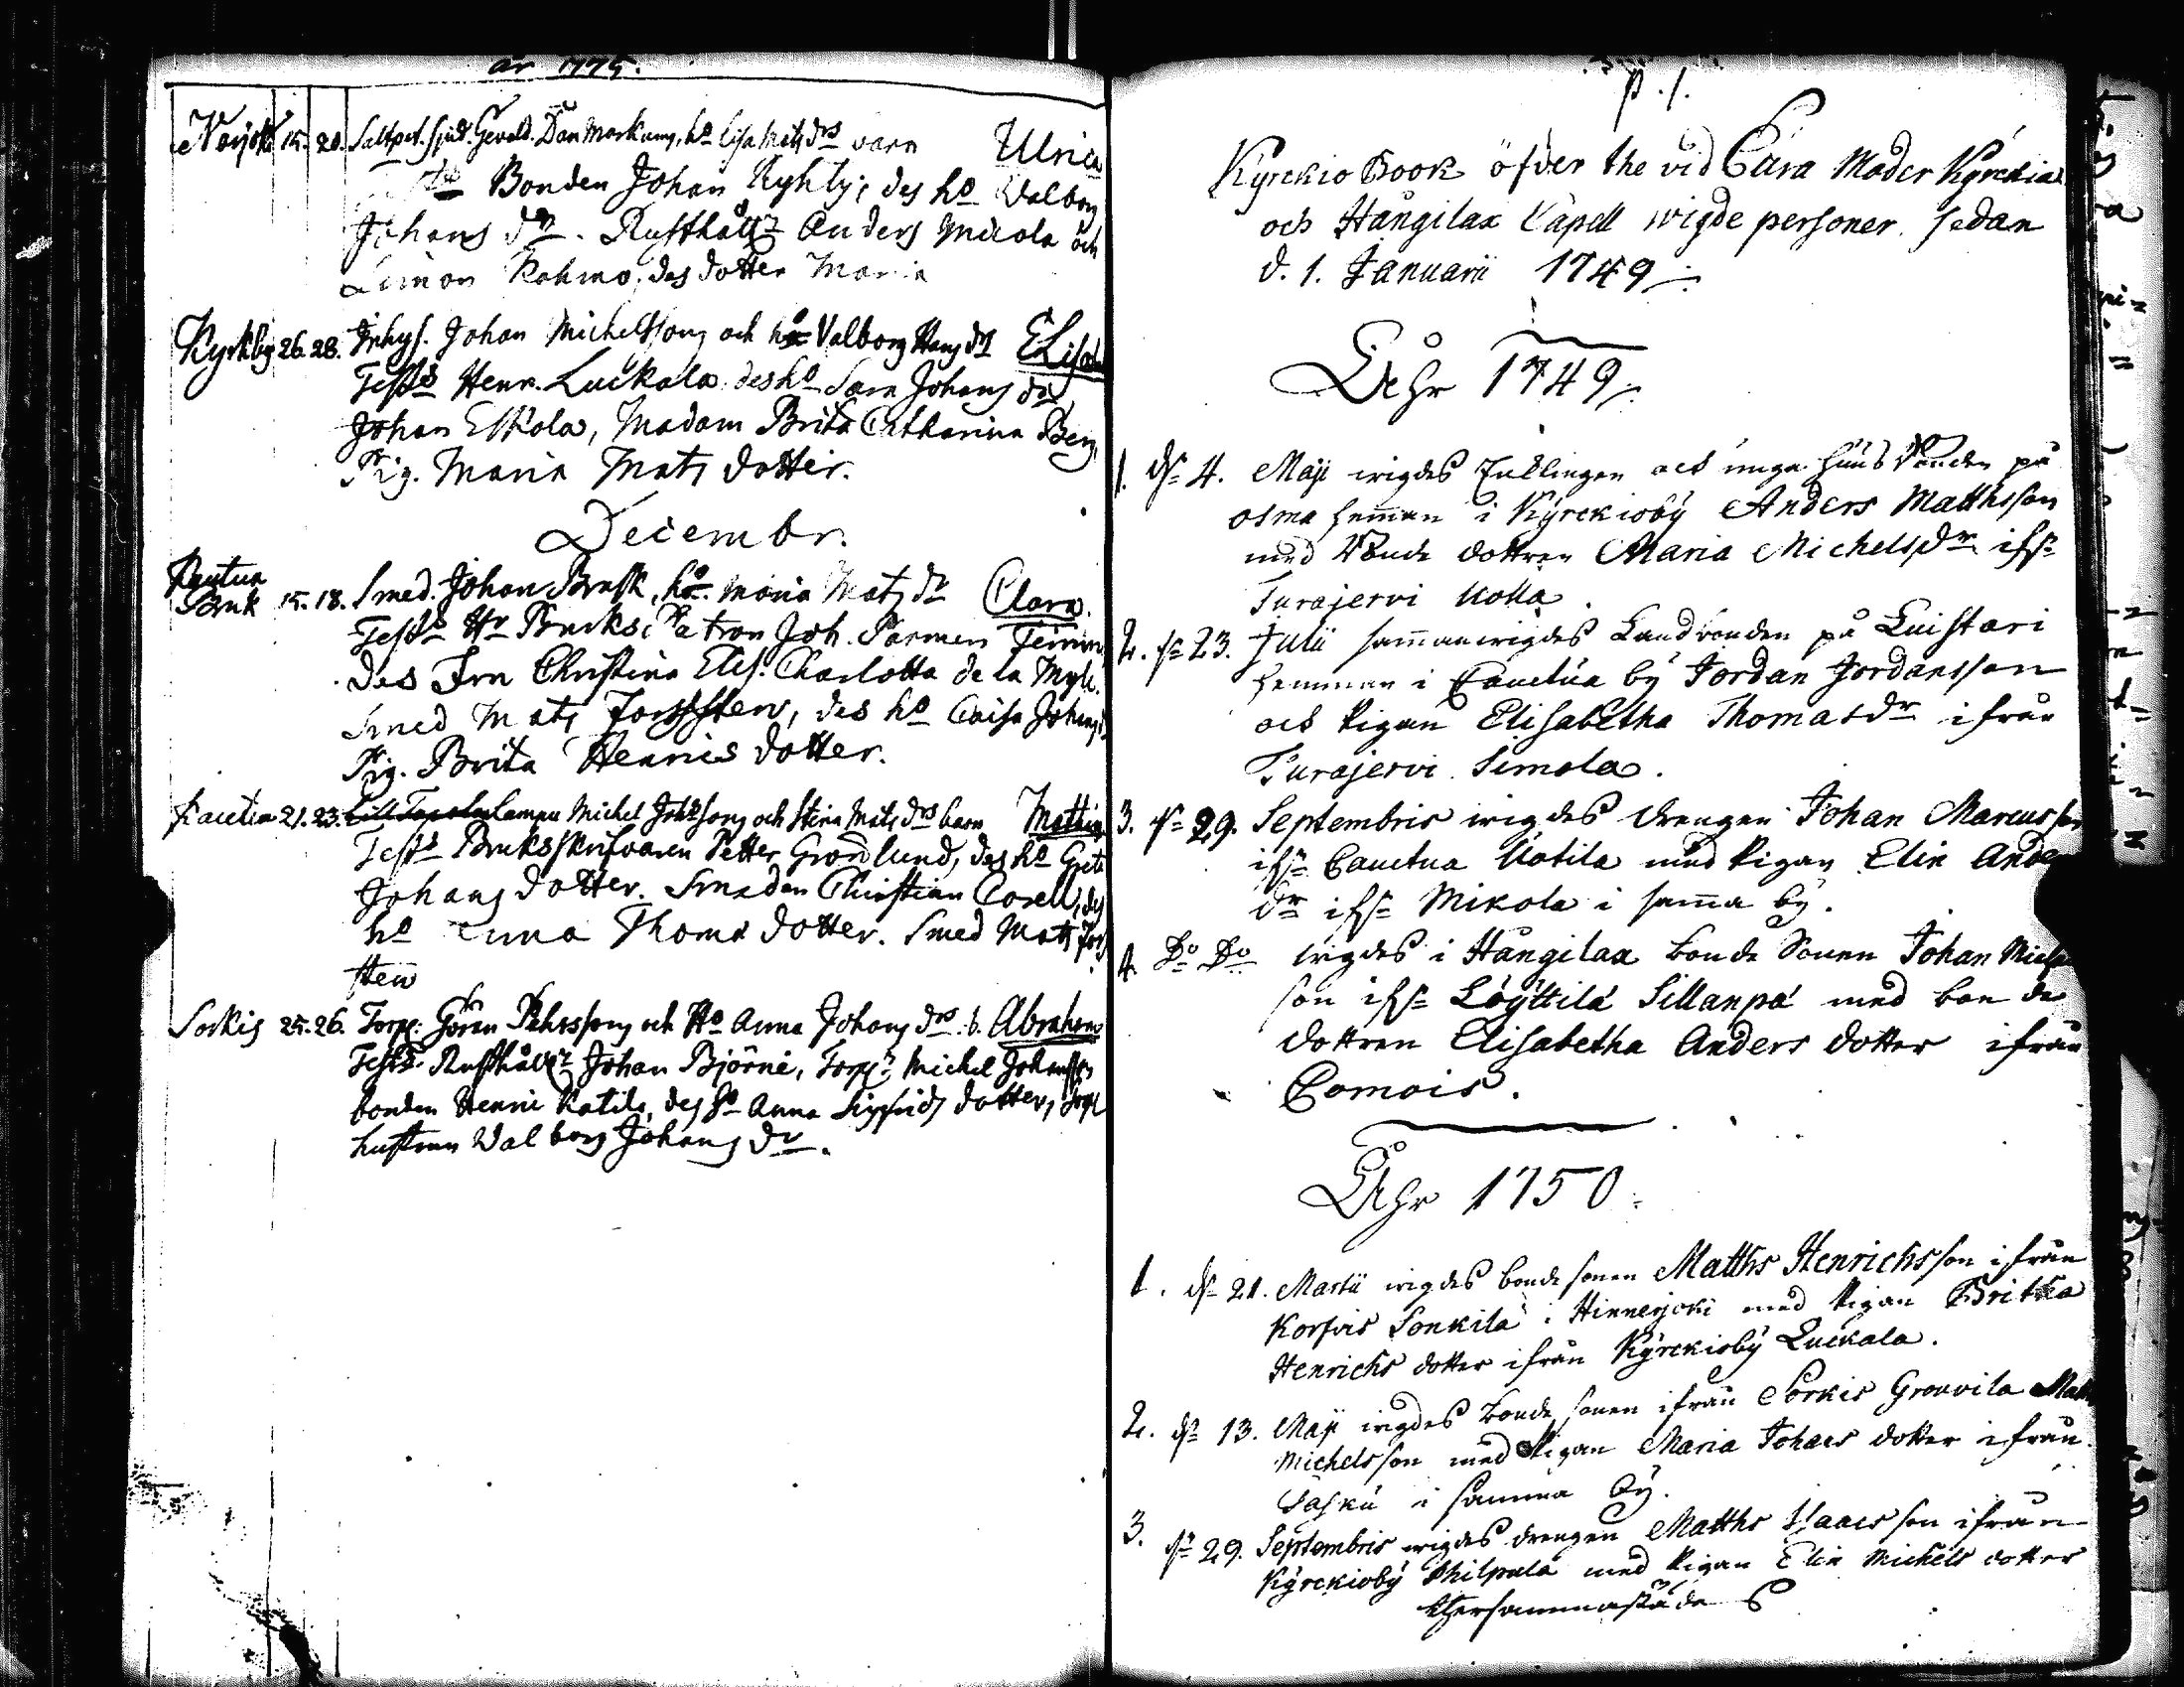 år 1775.
15. 20. Saltpet. sjud. Gevald. Dan Markum, ho Lisa Mats drs barn Ulrica
Bonden Johan Kyhty, des ho Walborg
Johans dr. Rusthålln Anders Mickola och
Simon Rahmo, des dotter Maria
Kyrkby 26. 28. Inhys. Johan Michelssons och ho Valborg Hans drs Elisab
Tests Henr. Luckala des ho Sara Johans dr
Johan Eskola, Madam Brita Catharina Berg,
Pig. Maria Mats dotter.
Decembr.
Kautua
Bruk 15. 18. Smed. Johan Brusk, ho. Maria Mats dr Clara.
Tests Hr Bruks Patron Joh. Parmen Timm
des Fru Christina Elis. Charlotta de la Myle.
Smed Mats Forssten, des ho Caisa Johans d
Pig. Brita Henrics dotter.
Kautua 21. 23. Lampu Michel Johssons och Stina Mats drs barn Mathias
Tests Bruksskrifvaren Petter Grönlund, des ho Greta
Johans dotter. Smeden Christian Corell, des
ho Anna Thoma dotter. Smed Mats Fors
sten
Sorkis 25. 26. Torp: Gören Pehrssons och Ho Anna Johans drs. b. Abraham
Tests. Rusthålln Johan Björni, Torpr Michel Johansson
bonden Henric Kotila, des ho Anna Sigfrids dotter, Torp
hustrun Walborg Johans dr.
p. 1.
Kyrckio Book öfver the vid Eura Moder Kyrckia
och Hångilax Capell wigde personer sedan
d. 1. Januarii 1749
Åhr 1749
1. dn 4. Maji wigdes Enklingen och unga husbonden på
osma hemman i Kyrckioby Anders Matthsson
med Bonde dottren Maria Michelsdr ifrn
Turajervi Kolla
2. dn 23. Julii sammanwigdes Landbonden på Luistari
hemman i Cauctua by Jordan Jordansson
och pigan Elisabetha Thomasdr ifrån
Turajervi Simola.
3. dn 29. Septembris wigdes drengen Johan Marcusson
ifrn Cauctua Uotila med pigan Elin Anders
dr ifrn Mikola i samma by.
4. Do Do wigdes i Hångilax bonde Sonen Johan Michels
son ifrn Löyttilä Sillanpä med bonde
dottren Elisabetha Anders dotter ifrån
Comois.
Åhr 1750
1. dn 21. Martii wigdes bonde sonen Matths Henrichsson ifrån
Korfvis Sonkila i Hinnerjoki med pigan Britha
Henrichs dotter ifrån Kyrckioby Luckala.
2. dn 13. Maji wigdes bonde sonen ifrån Sorkis Grouvila Matts
Michelsson med pigan Maria Johans dotter ifrån
Säskü i samma by.
3. dn 29. Septembris wigdes drengen Matths Isaacsson ifrån
Kyrckioby Philpula med pigan Elin Michels dotter
thersammastädes